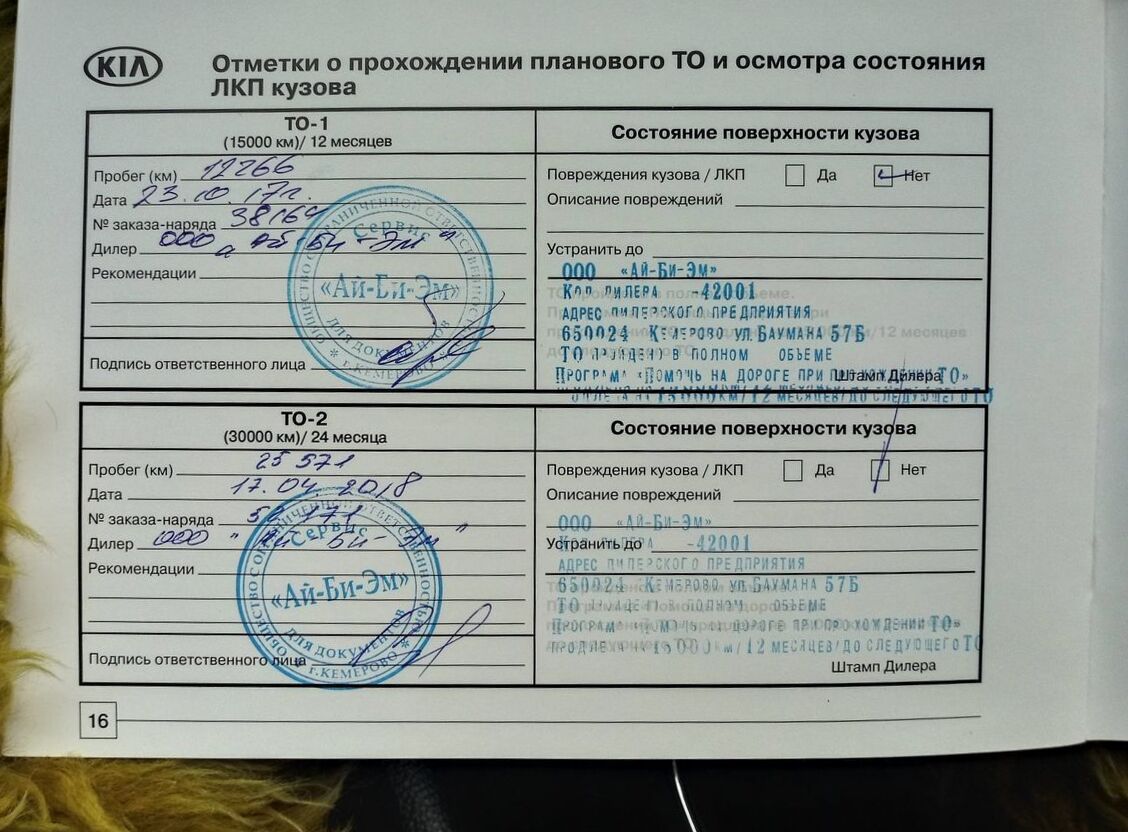 KIA
Отметки о прохождении планового ТО и осмотра состояния
ЛКП кузова
ТО-1
(15000 км)/ 12 месяцев
Пробег (км) 12266
Дата 23.10.17г.
№ заказа-наряда 38164
Дилер ООО «Ай-Би-Эм»
Рекомендации
Подпись ответственного лица
Сервис
«Ай-Би-Эм»
ДЛЯ ДОКУМЕНТОВ
ОБЩЕСТВО С ОГРАНИЧЕННОЙ ОТВЕТСТВЕННОСТЬЮ
* г.КЕМЕРОВО *
Состояние поверхности кузова
Повреждения кузова / ЛКП Да Нет
Описание повреждений
Устранить до
ООО «Ай-Би-Эм»
Код дилера -42001
Адрес дилерского предприятия
650024 Кемерово ул.Баумана 57Б
ТО пройдено в полном объеме
Програм «Помочь на дороге при прохождении ТО»
15000км/12 месяцев/до следующего ТО
Штамп Дилера
ТО-2
(30000 км)/ 24 месяца
Пробег (км) 25 571
Дата 17.04.2018
№ заказа-наряда
Дилер ООО "Ай-Би-Эм"
Рекомендации
Подпись ответственного лица
Сервис
«Ай-Би-Эм»
ДЛЯ ДОКУМЕНТОВ
ОБЩЕСТВО С ОГРАНИЧЕННОЙ ОТВЕТСТВЕННОСТЬЮ
* г.КЕМЕРОВО *
Состояние поверхности кузова
Повреждения кузова / ЛКП Да Нет
Описание повреждений
ООО «Ай-Би-Эм»
Устранить до
Код дилера -42001
Адрес дилерского предприятия
650024 Кемерово ул.Баумана 57Б
ТО пройдено в полном объеме
Програм «Помочь на дороге при прохождении ТО»
15000км/12 месяцев/до следующего ТО
Штамп Дилера
16